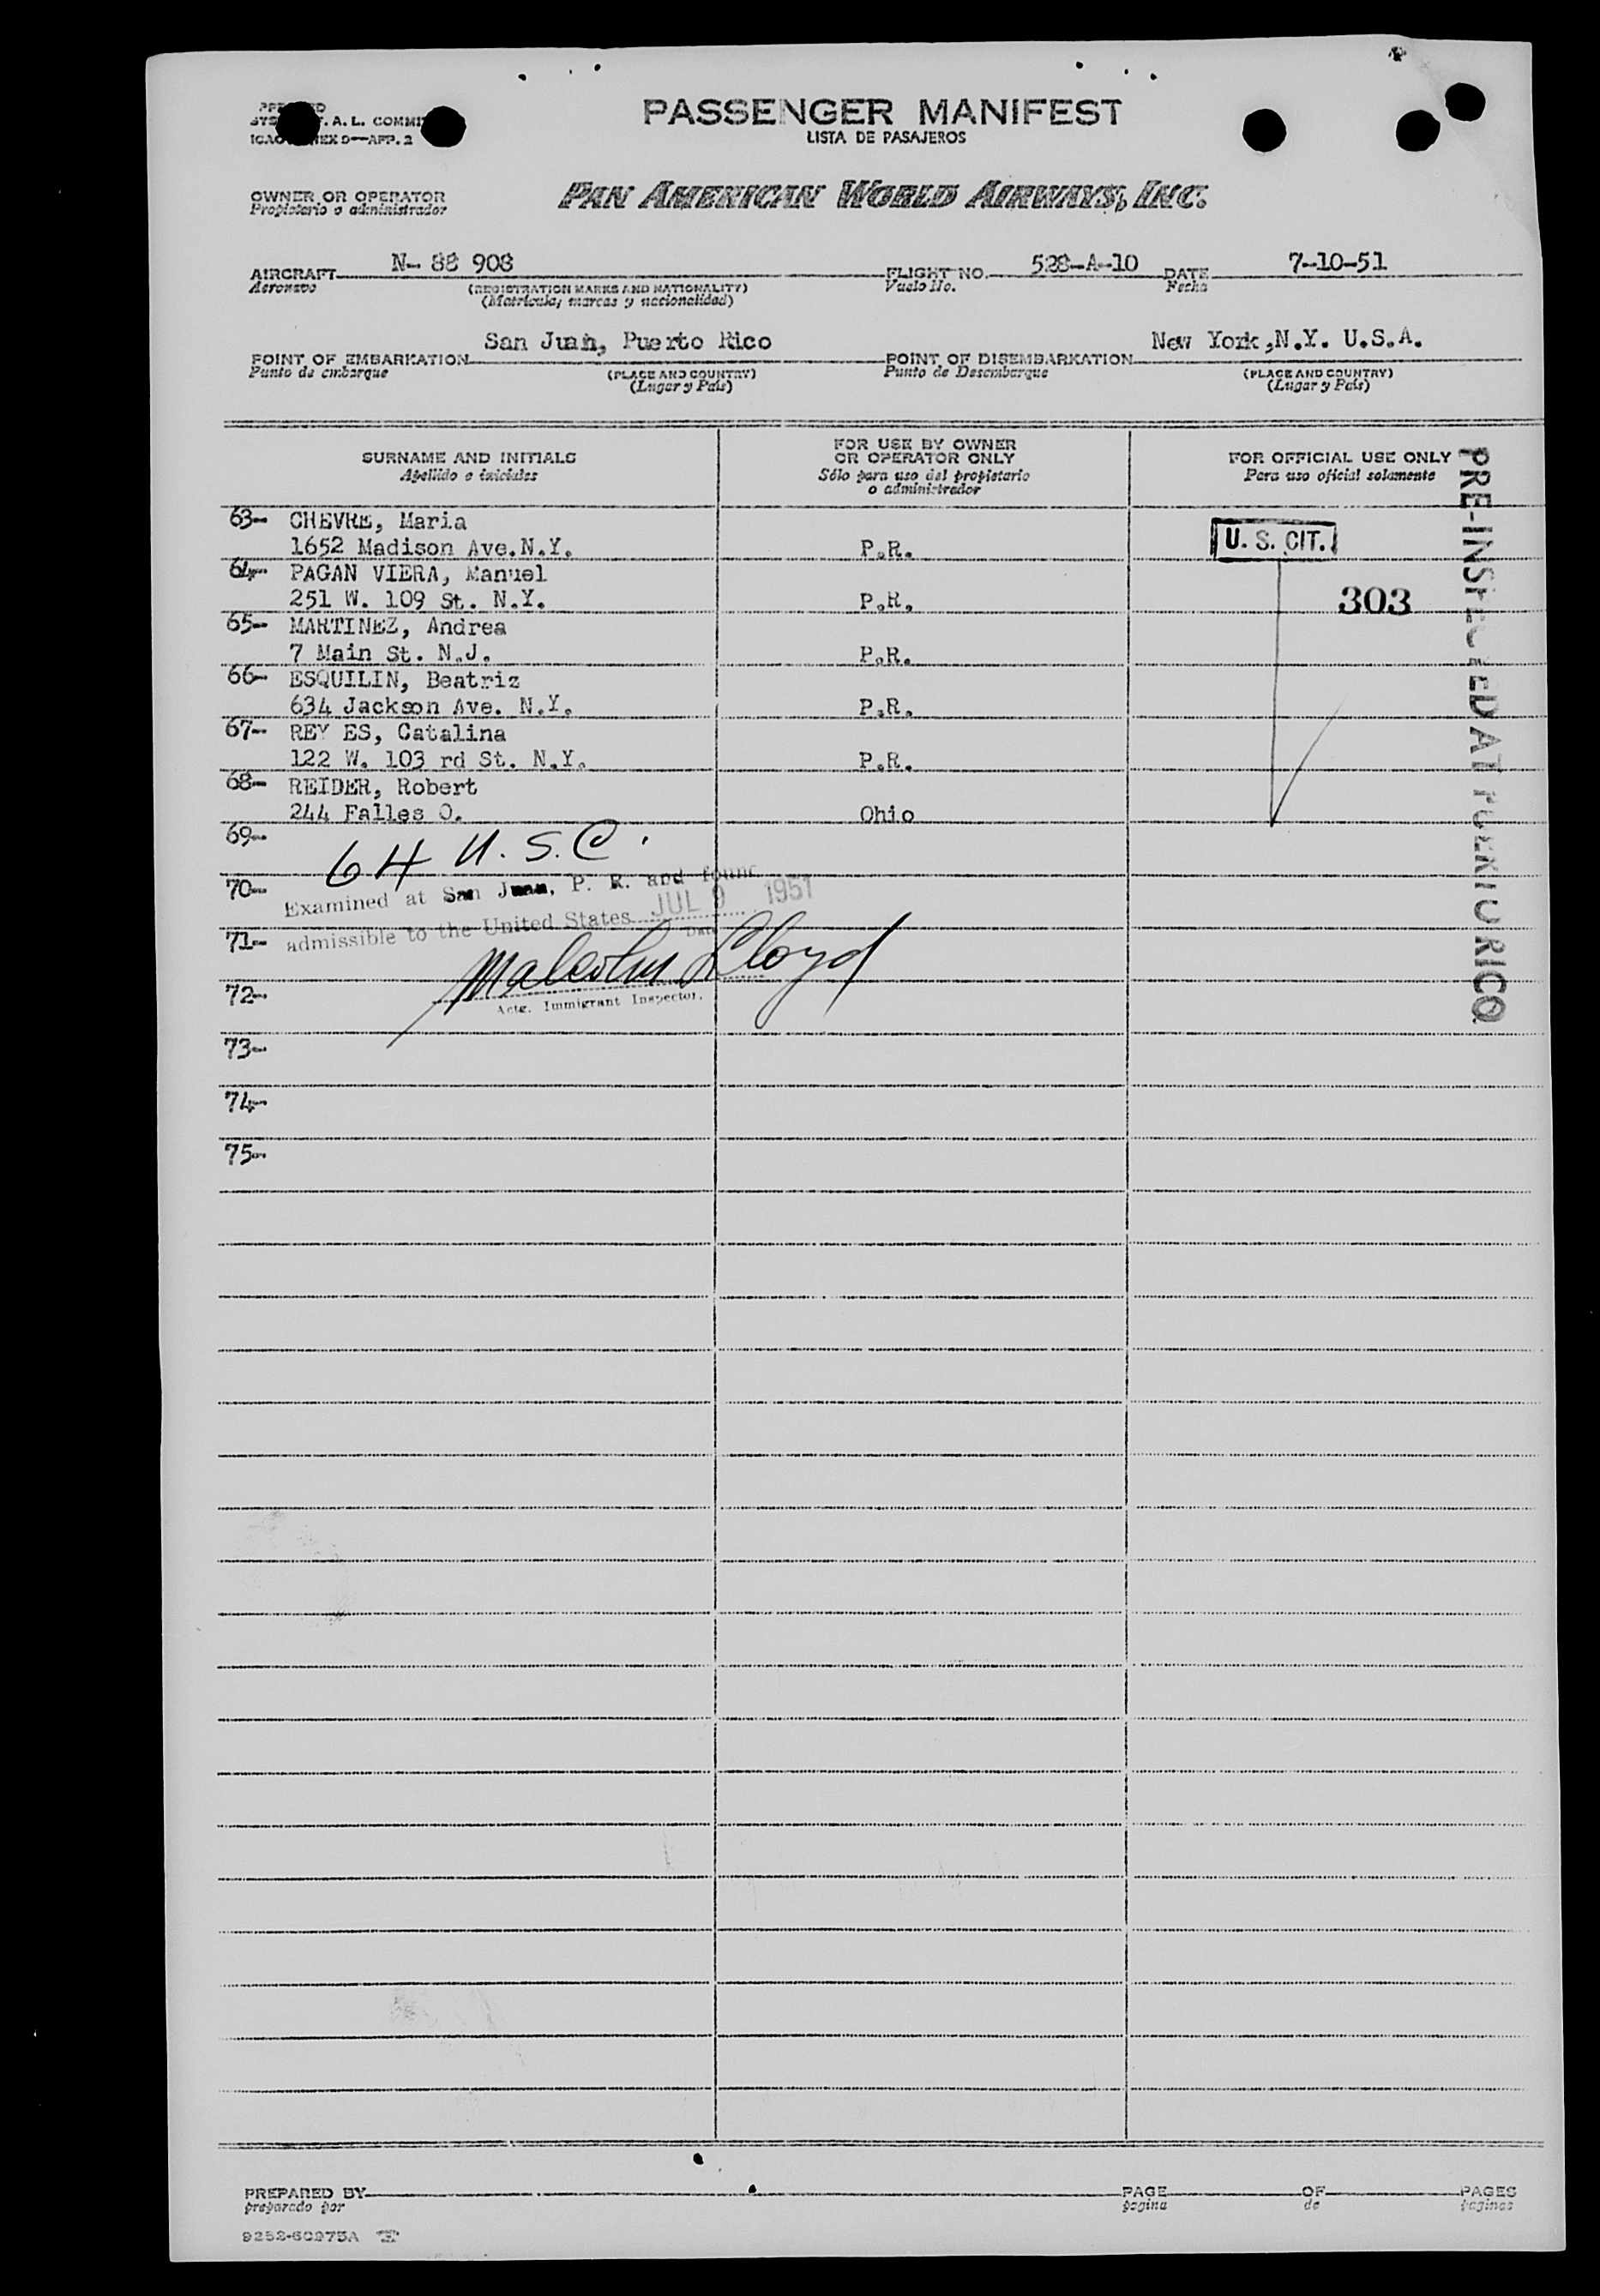 PASSENGER MANIFEST
LISTA DE PASAJEROS
A. L.
APP. 2
OWNER OR OPERATOR
Propietario o administrador
PAN AMERICAN WORLD AIRWAYS, INC.
AIRCRAFT N- 88 908 FLIGHT NO. 528-A-10 DATE 7-10-51
Aeronave (REGISTRATION MARKS AND NATIONALITY) Vuelo No. Fecha
(Matrícula, marcas y nacionalidad)
POINT OF EMBARKATION San Juan, Puerto Rico POINT OF DISEMBARKATION New York,N.Y. U.S.A.
Punto de embarque (PLACE AND COUNTRY) Punto de Desembarque (PLACE AND COUNTRY)
(Lugar y País) (Lugar y País)
SURNAME AND INITIALS FOR USE BY OWNER OR OPERATOR ONLY FOR OFFICIAL USE ONLY
Apellido e iniciales Sólo para uso del propietario o administrador Para uso oficial solamente
63- CHEVRE, Maria
1652 Madison Ave.N.Y. P.R. U. S. CIT.
64- PAGAN VIERA, Manuel
251 W. 109 St. N.Y. P.R. 303
65- MARTINEZ, Andrea
7 Main St. N.J. P.R.
66- ESQUILIN, Beatriz
634 Jackson Ave. N.Y. P.R.
67- REY ES, Catalina
122 W. 103 rd St. N.Y. P.R.
68- REIDER, Robert
244 Falles O. Ohio
69-
64 U.S.C.
70-
Examined at San Juan, P. R. and found
admissible to the United States JUL 9 1951
Date
71-
Malcolm Lloyd
72-
Actg. Immigrant Inspector.
73-
74-
75-
PRE-INSPECTED AT PUERTO RICO
PREPARED BY PAGE OF PAGES
preparado por página de páginas
9252-60975A